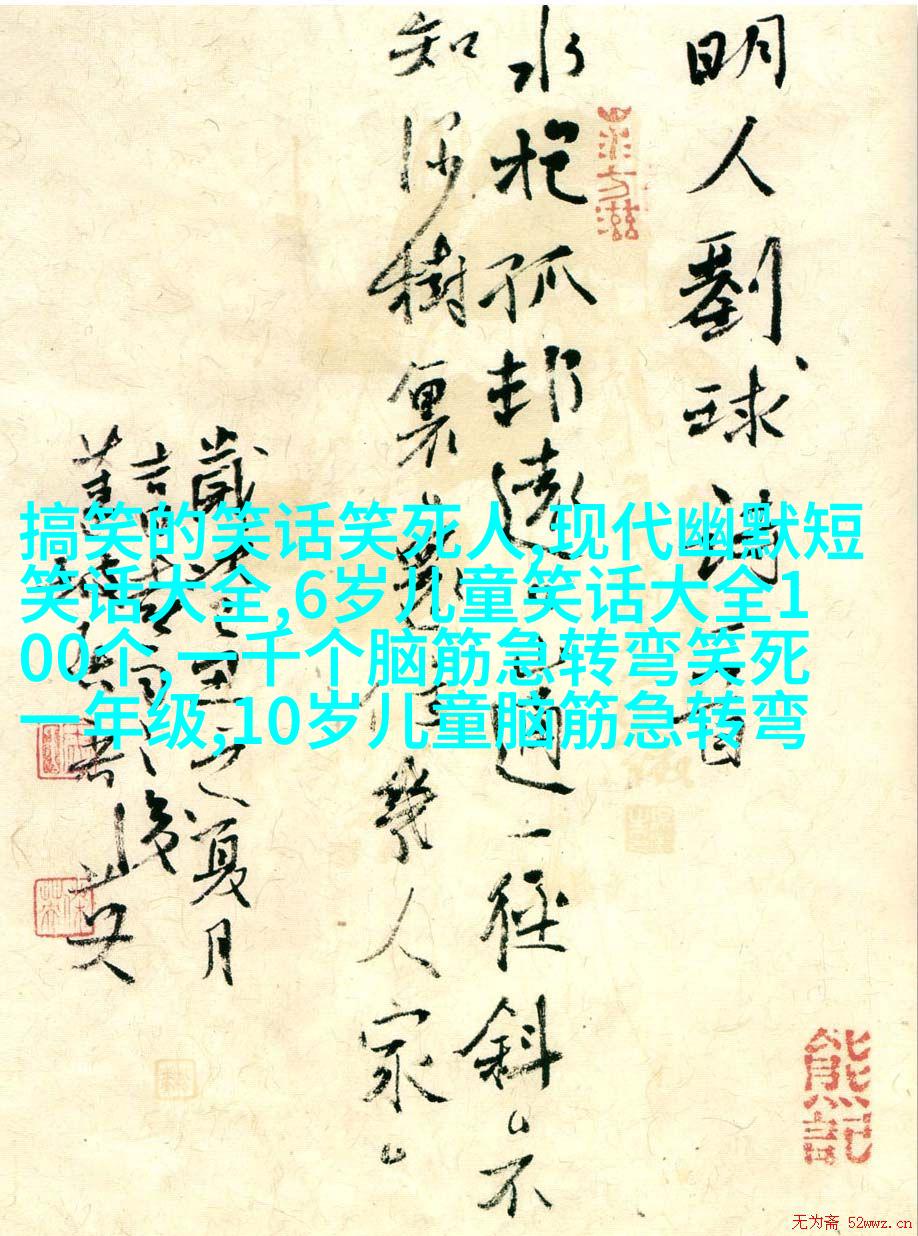 明人劉球詩一首
水抱孤邨遠山通一徑斜不
知深樹裏還住幾人家
歲丑之夏月
搞笑的笑话笑死人,现代幽默短
笑话大全,6岁儿童笑话大全1
00个,一千个脑筋急转弯笑死
一年级,10岁儿童脑筋急转弯
熊記
无为斋 52wwz.cn